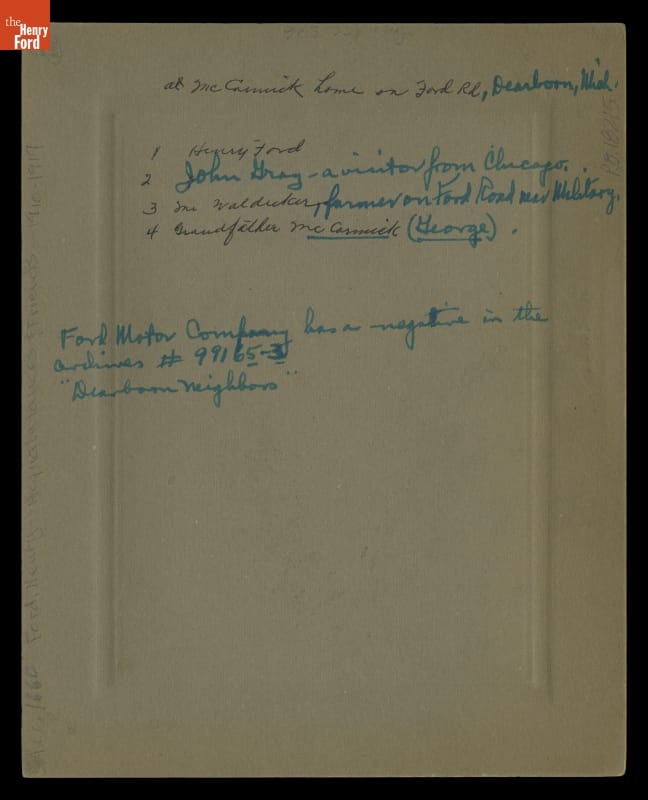 the
Henry
Ford
at McCormick home on Ford Rd, Dearborn, Mich.
1 Henry Ford
2 John Gray - a visitor from Chicago.
3 Mr Waldecker, farmer on Ford Road near Military.
4 Grandfather McCormick (George).
Ford Motor Company has a negative in the
archives # 99165-3
"Dearborn Neighbors"
Ford, Henry acquaintances & friends 1910-1919